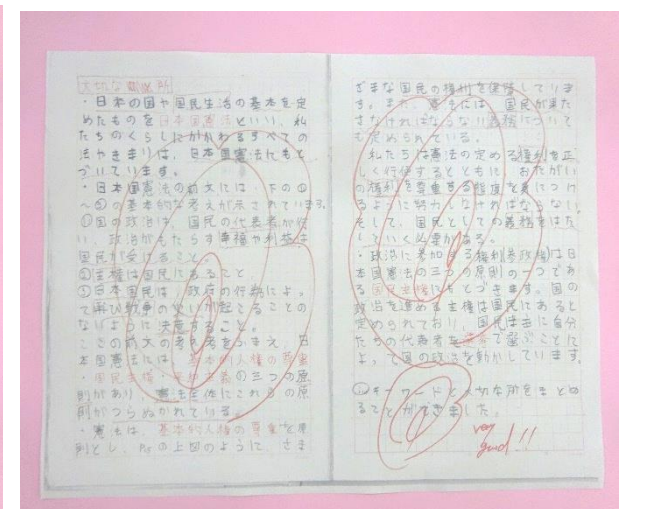 大切な重要所
・日本の国や国民生活の基本を定
めたものを日本国憲法といい、私
たちのくらしにかかわるすべての
法やきまりは、日本国憲法にもと
づいています。
・日本国憲法の前文には、下の①
～③の基本的な考えが示されています。
①国の政治は、国民の代表者が行
い、政治がもたらす幸福や利益は
国民が受けること
②主権は国民にあること
③日本国民は、政府の行為によっ
て再び戦争の災いが起こることの
ないように決意すること。
この前文の考えをふまえ、日
本国憲法には、基本的人権の尊重
・国民主権・平和主義の三つの原
則があり、憲法全体にこれらの原
則がつらぬかれている。
・憲法は、基本的人権の尊重を原
則とし、P₈の上図のように、さま
ざまな国民の権利を保障していま
す。また、憲法には、国民が果た
さなければならない義務について
も定められている。
私たちは憲法の定める権利を正
しく行使するとともに、おたがい
の権利を尊重する態度を身につけ
るように努力しなければならない。
そして、国民としての義務をはた
していく必要がある。
・政治に参加する権利(参政権)は日
本国憲法の三つの原則の一つであ
る国民主権にもとづきます。国の
政治を進める主権は国民にあると
定められており、国民は主に自分
たちの代表者を選挙で選ぶことに
よって国の政治を動かしています。
キーワードと大切な所をまとめ
ることができました。
very
good!!